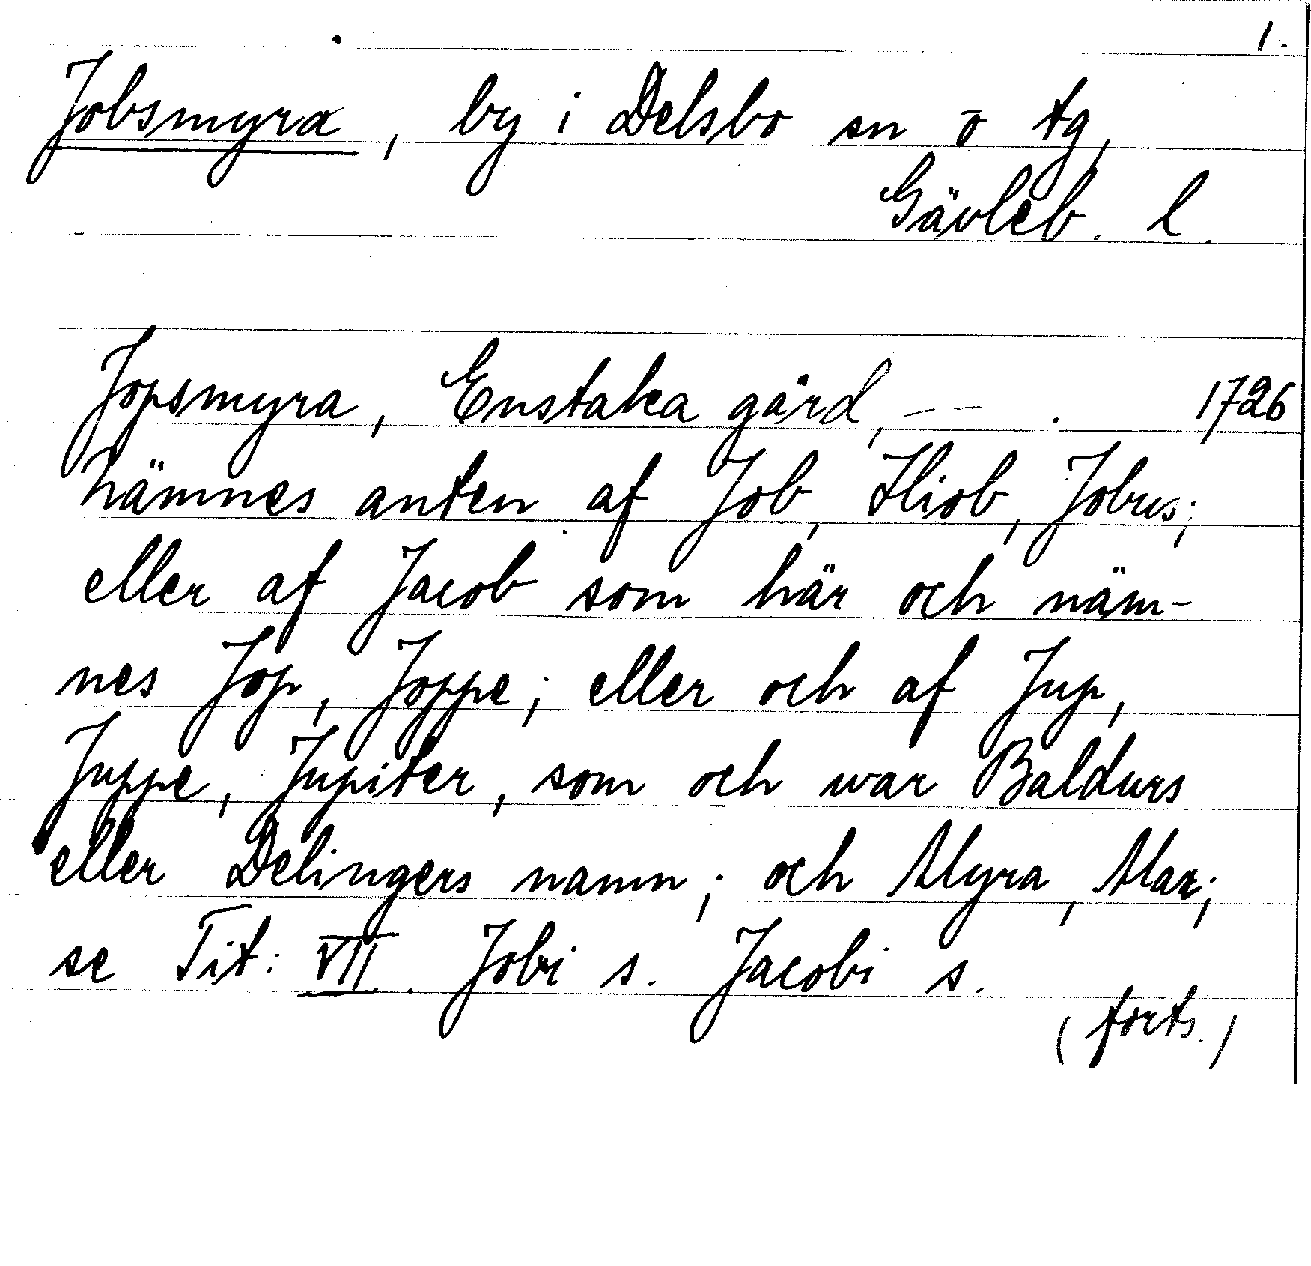 1.
Jobsmyra, by i Delsbo sn o tg,
Gävleb. l.
Jopsmyra, Enstaka gård, – – . 1726
nämnes anten af Job, Hiob, Jobus;
eller af Jacob som här och näm-
nes Jop, Joppe; eller och af Jup,
Juppe, Jupiter, som och war Baldurs
eller Delingers namn; och Myra, Mar;
se Tit: VII. Jobi s. Jacobi s.
(forts.)